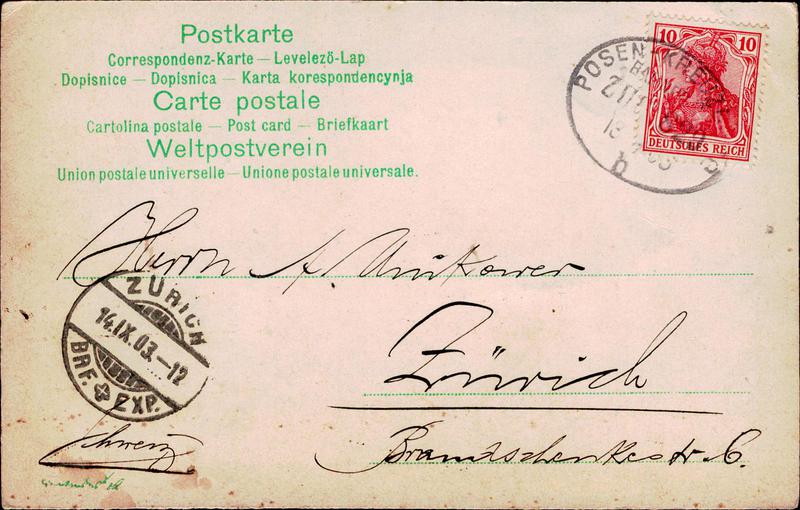 Postkarte
Correspondenz-Karte – Levelező-Lap
Dopisnice – Dopisnica – Karta korespondencynja
Carte postale
Cartolina postale – Post card – Briefkaart
Weltpostverein
Union postale universelle – Unione postale universale.
10 10
DEUTSCHES REICH
POSEN - KREUZ
b
Herrn A. Unikower
Zürich
Brandschenkestr 6.
ZÜRICH
14.IX.03.–12
BRF. EXP.
Schweiz